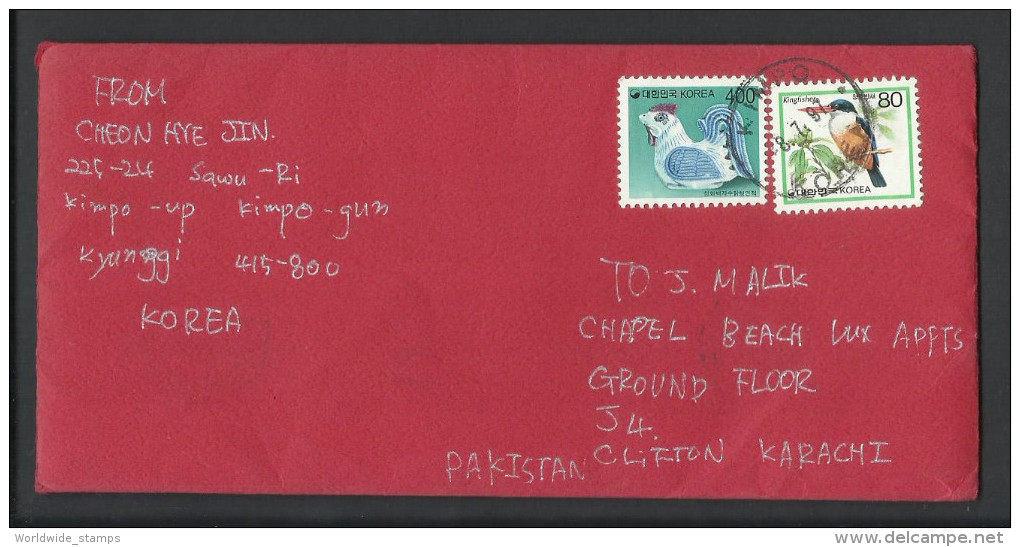 FROM
CHEON HYE JIN.
225-24 Sawu-Ri
Kimpo-up Kimpo-gun
Kyunggi 415-800
KOREA
대한민국 KOREA 400
Kingfishers 80
대한민국 KOREA
KIMPO
TO J. MALIK
CHAPEL BEACH LUX APPTS
GROUND FLOOR
J4.
CLIFTON KARACHI
PAKISTAN
Worldwide_stamps
delcampe.net